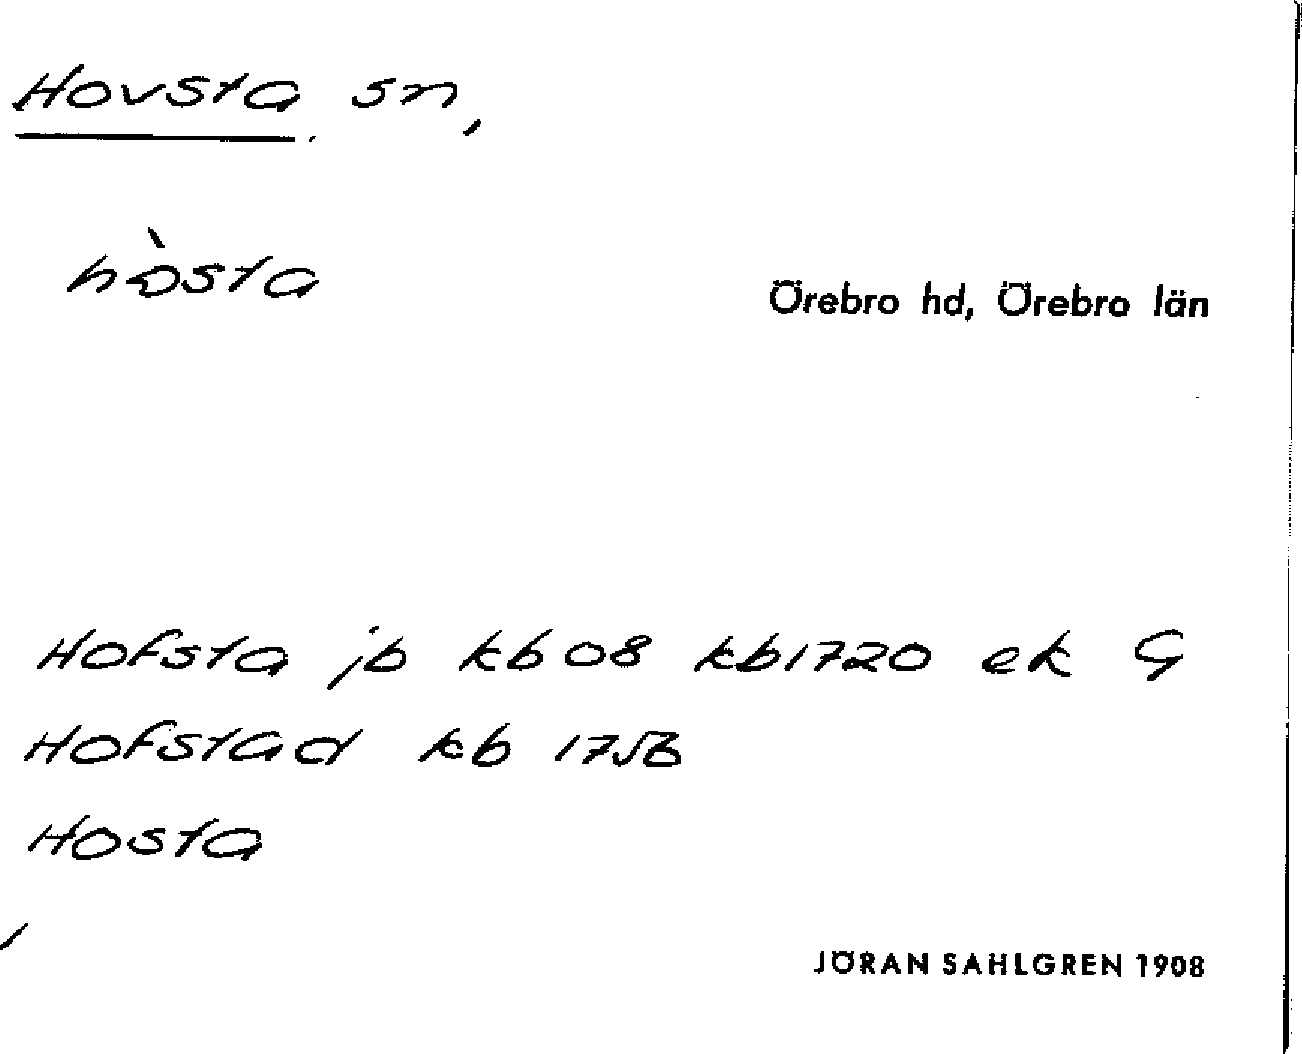 Hovsta sn,
hòsta
Örebro hd, Örebro län
Hofsta jb kb 08 kb 1720 ek G
Hofstad kb
Hosta
JÖRAN SAHLGREN 1908